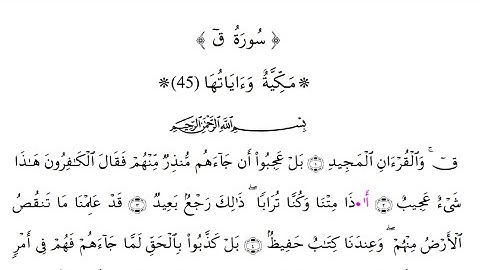 ﴿ سُورَةُ قٓ ﴾
* مَكِّيَّةٌ وَءَايَاتُهَا (45) *
بِسْمِ اللَّهِ الرَّحْمَٰنِ الرَّحِيمِ
قٓۚ وَالْقُرْءَانِ الْمَجِيدِ ۝١ بَلْ عَجِبُوٓاْ أَن جَآءَهُم مُّنذِرٌ مِّنْهُمْ فَقَالَ الْكَٰفِرُونَ هَٰذَا
شَيْءٌ عَجِيبٌ ۝٢ أَ•ذَا مِتْنَا وَكُنَّا تُرَابًاۖ ذَٰلِكَ رَجْعٌۢ بَعِيدٌ ۝٣ قَدْ عَلِمْنَا مَا تَنقُصُ
الْأَرْضُ مِنْهُمْۖ وَعِندَنَا كِتَٰبٌ حَفِيظٌۢ ۝٤ بَلْ كَذَّبُواْ بِالْحَقِّ لَمَّا جَآءَهُمْ فَهُمْ فِيٓ أَمْرٍ